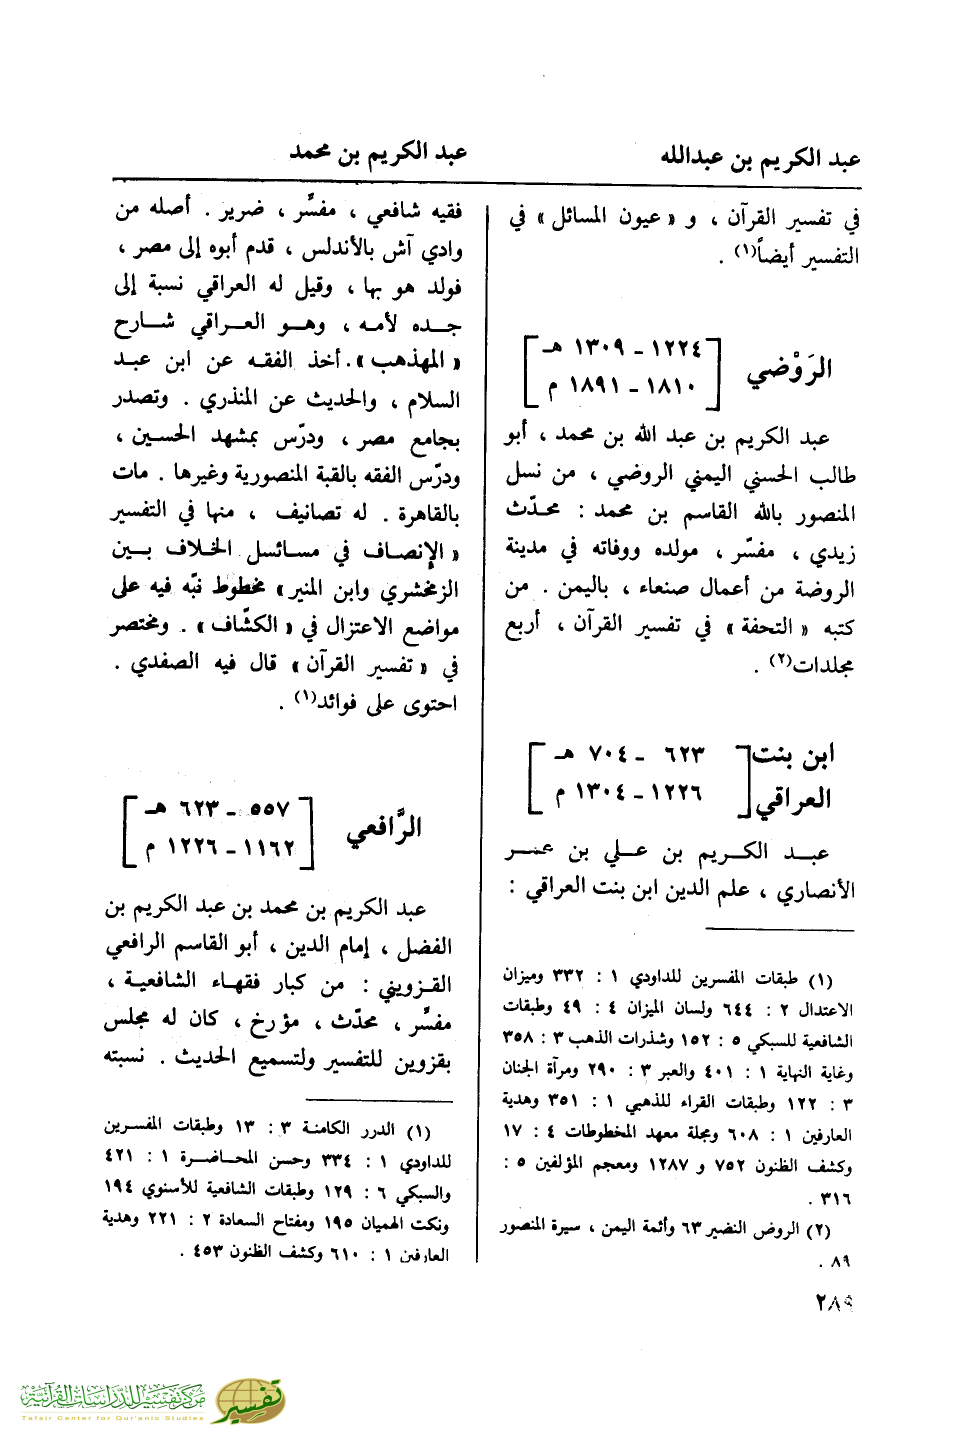 عبد الكريم بن عبدالله
عبد الكريم بن محمد
في تفسير القرآن ، و « عيون المسائل » في
التفسير أيضاً(١) .
الرَوْضي
١٢٢٤ ـ ١٣٠٩ هـ
١٨١٠ ـ ١٨٩١ م
عبد الكريم بن عبد الله بن محمد ، أبو
طالب الحسني اليمني الروضي ، من نسل
المنصور بالله القاسم بن محمد : محدّث
زيدي ، مفسّر ، مولده ووفاته في مدينة
الروضة من أعمال صنعاء ، باليمن . من
كتبه « التحفة » في تفسير القرآن ، أربع
مجلدات(٢) .
ابن بنت
العراقي
٦٢٣ ـ ٧٠٤ هـ
١٢٢٦ ـ ١٣٠٤ م
عبد الكريم بن علي بن عمر
الأنصاري ، علم الدين ابن بنت العراقي :
(١) طبقات المفسرين للداودي ١ : ٣٣٢ وميزان
الاعتدال ٢ : ٦٤٤ ولسان الميزان ٤ : ٤٩ وطبقات
الشافعية للسبكي ٥ : ١٥٢ وشذرات الذهب ٣ : ٣٥٨
وغاية النهاية ١ : ٤٠١ والعبر ٣ : ٢٩٠ ومرآة الجنان
٣ : ١٢٢ وطبقات القراء للذهبي ١ : ٣٥١ وهدية
العارفين ١ : ٦٠٨ ومجلة معهد المخطوطات ٤ : ١٧
وكشف الظنون ٧٥٢ و ١٢٨٧ ومعجم المؤلفين ٥ :
٣١٦ .
(٢) الروض النضير ٦٣ وأئمة اليمن ، سيرة المنصور
٨٩ .
فقيه شافعي ، مفسّر ، ضرير . أصله من
وادي آش بالأندلس ، قدم أبوه إلى مصر ،
فولد هو بها ، وقيل له العراقي نسبة إلى
جده لأمه ، وهو العراقي شارح
« المهذهب » . أخذ الفقه عن ابن عبد
السلام ، والحديث عن المنذري . وتصدر
بجامع مصر ، ودرّس بمشهد الحسين ،
ودرّس الفقه بالقبة المنصورية وغيرها . مات
بالقاهرة . له تصانيف ، منها في التفسير
« الإنصاف في مسائسل الخلاف بين
الزمخشري وابن المنير » مخطوط نبّه فيه على
مواضع الاعتزال في « الكشّاف » . ومختصر
في « تفسير القرآن » قال فيه الصفدي .
احتوى على فوائد(١) .
الرَّافعي
٥٥٧ ـ ٦٢٣ هـ
١١٦٢ ـ ١٢٢٦ م
عبد الكريم بن محمد بن عبد الكريم بن
الفضل ، إمام الدين ، أبو القاسم الرافعي
القزويني : من كبار فقهاء الشافعية ،
مفسّر ، محدّث ، مؤرخ ، كان له مجلس
بقزوين للتفسير ولتسميع الحديث . نسبته
(١) الدرر الكامنة ٣ : ١٣ وطبقات المفسرين
للداودي ١ : ٣٣٤ وحسن المحاضرة ١ : ٤٢١
والسبكي ٦ : ١٢٩ وطبقات الشافعية للأسنوي ١٩٤
ونكت الهميان ١٩٥ ومفتاح السعادة ٢ : ٢٢١ وهدية
العارفين ١ : ٦١٠ وكشف الظنون ٤٥٣ .
٢٨٩
مركز تفسير للدراسات القرآنية
Tafsir Center for Qur'anic Studies
تفسير